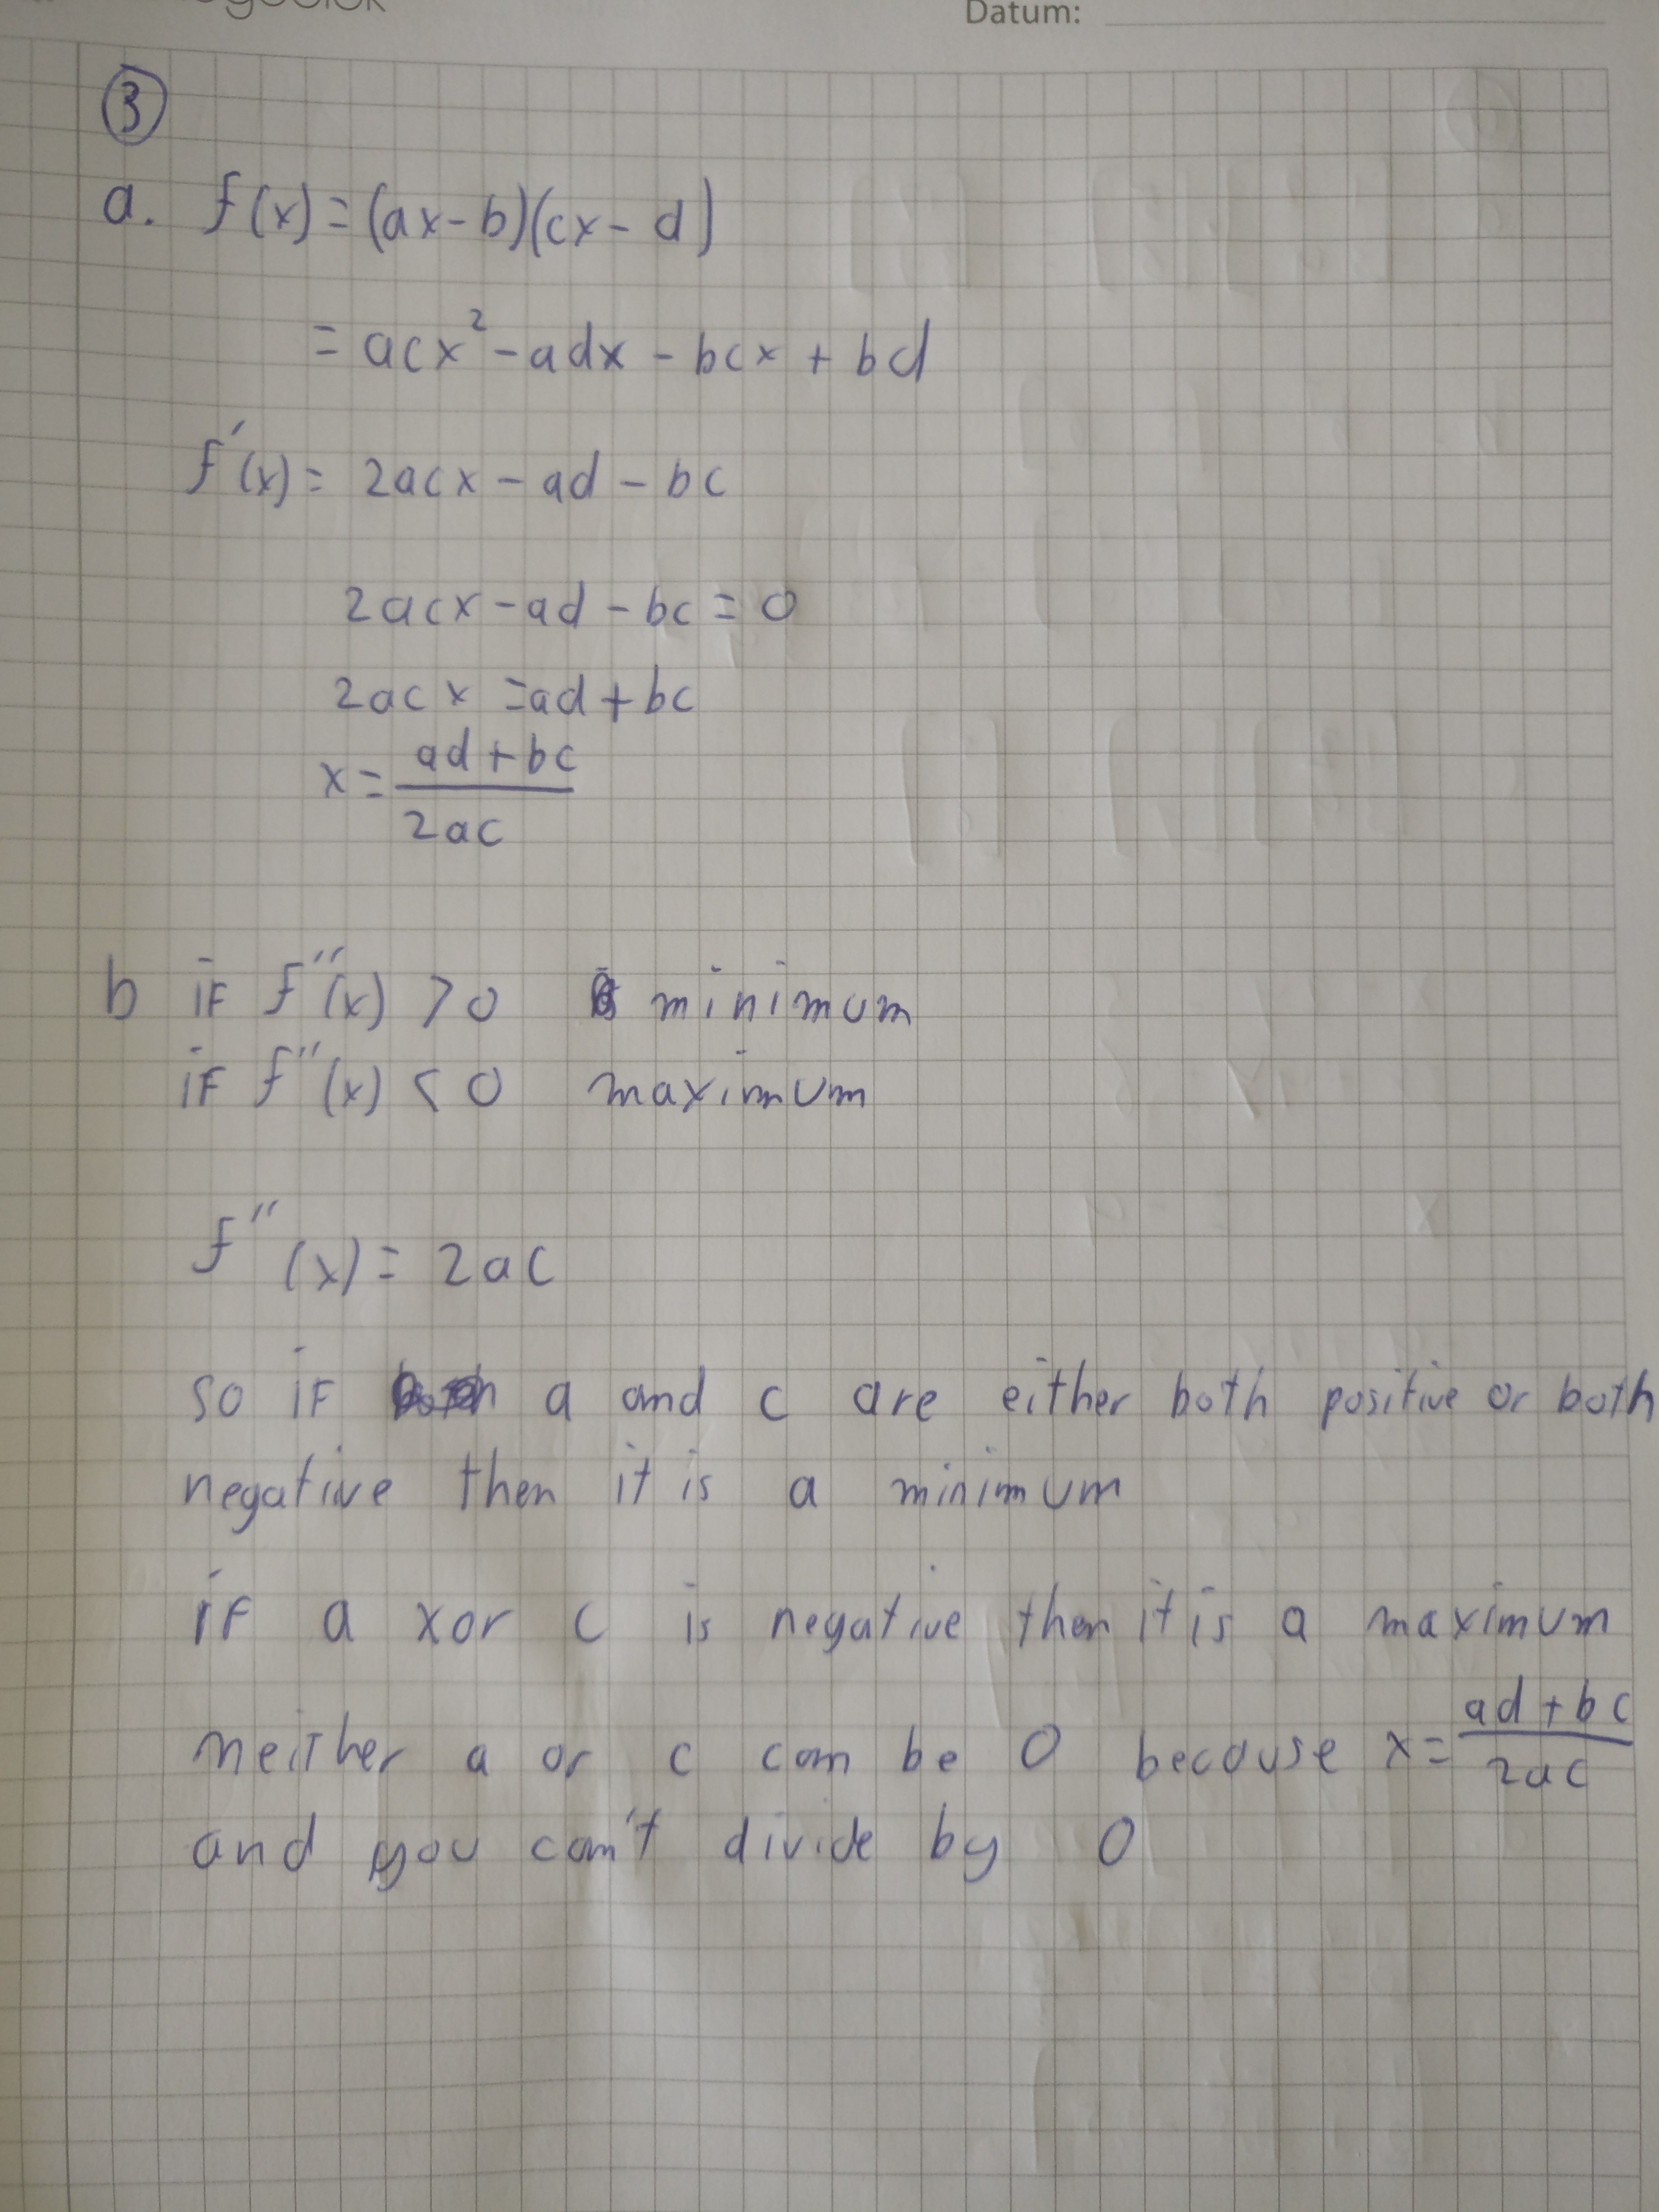 Datum:
3
a. f(x) = (ax-b)(cx-d)
= acx² - adx - bcx + bd
f'(x) = 2acx - ad - bc
2acx - ad - bc = 0
2acx = ad + bc
x = (ad + bc)/(2ac)
b if f"(x) > 0 minimum
if f"(x) < 0 maximum
f"(x) = 2ac
so if a and c are either both positive or both
negative then it is a minimum
if a xor c is negative then it is a maximum
neither a or c can be 0 because x = (ad + bc)/(2ac)
and you can't divide by 0